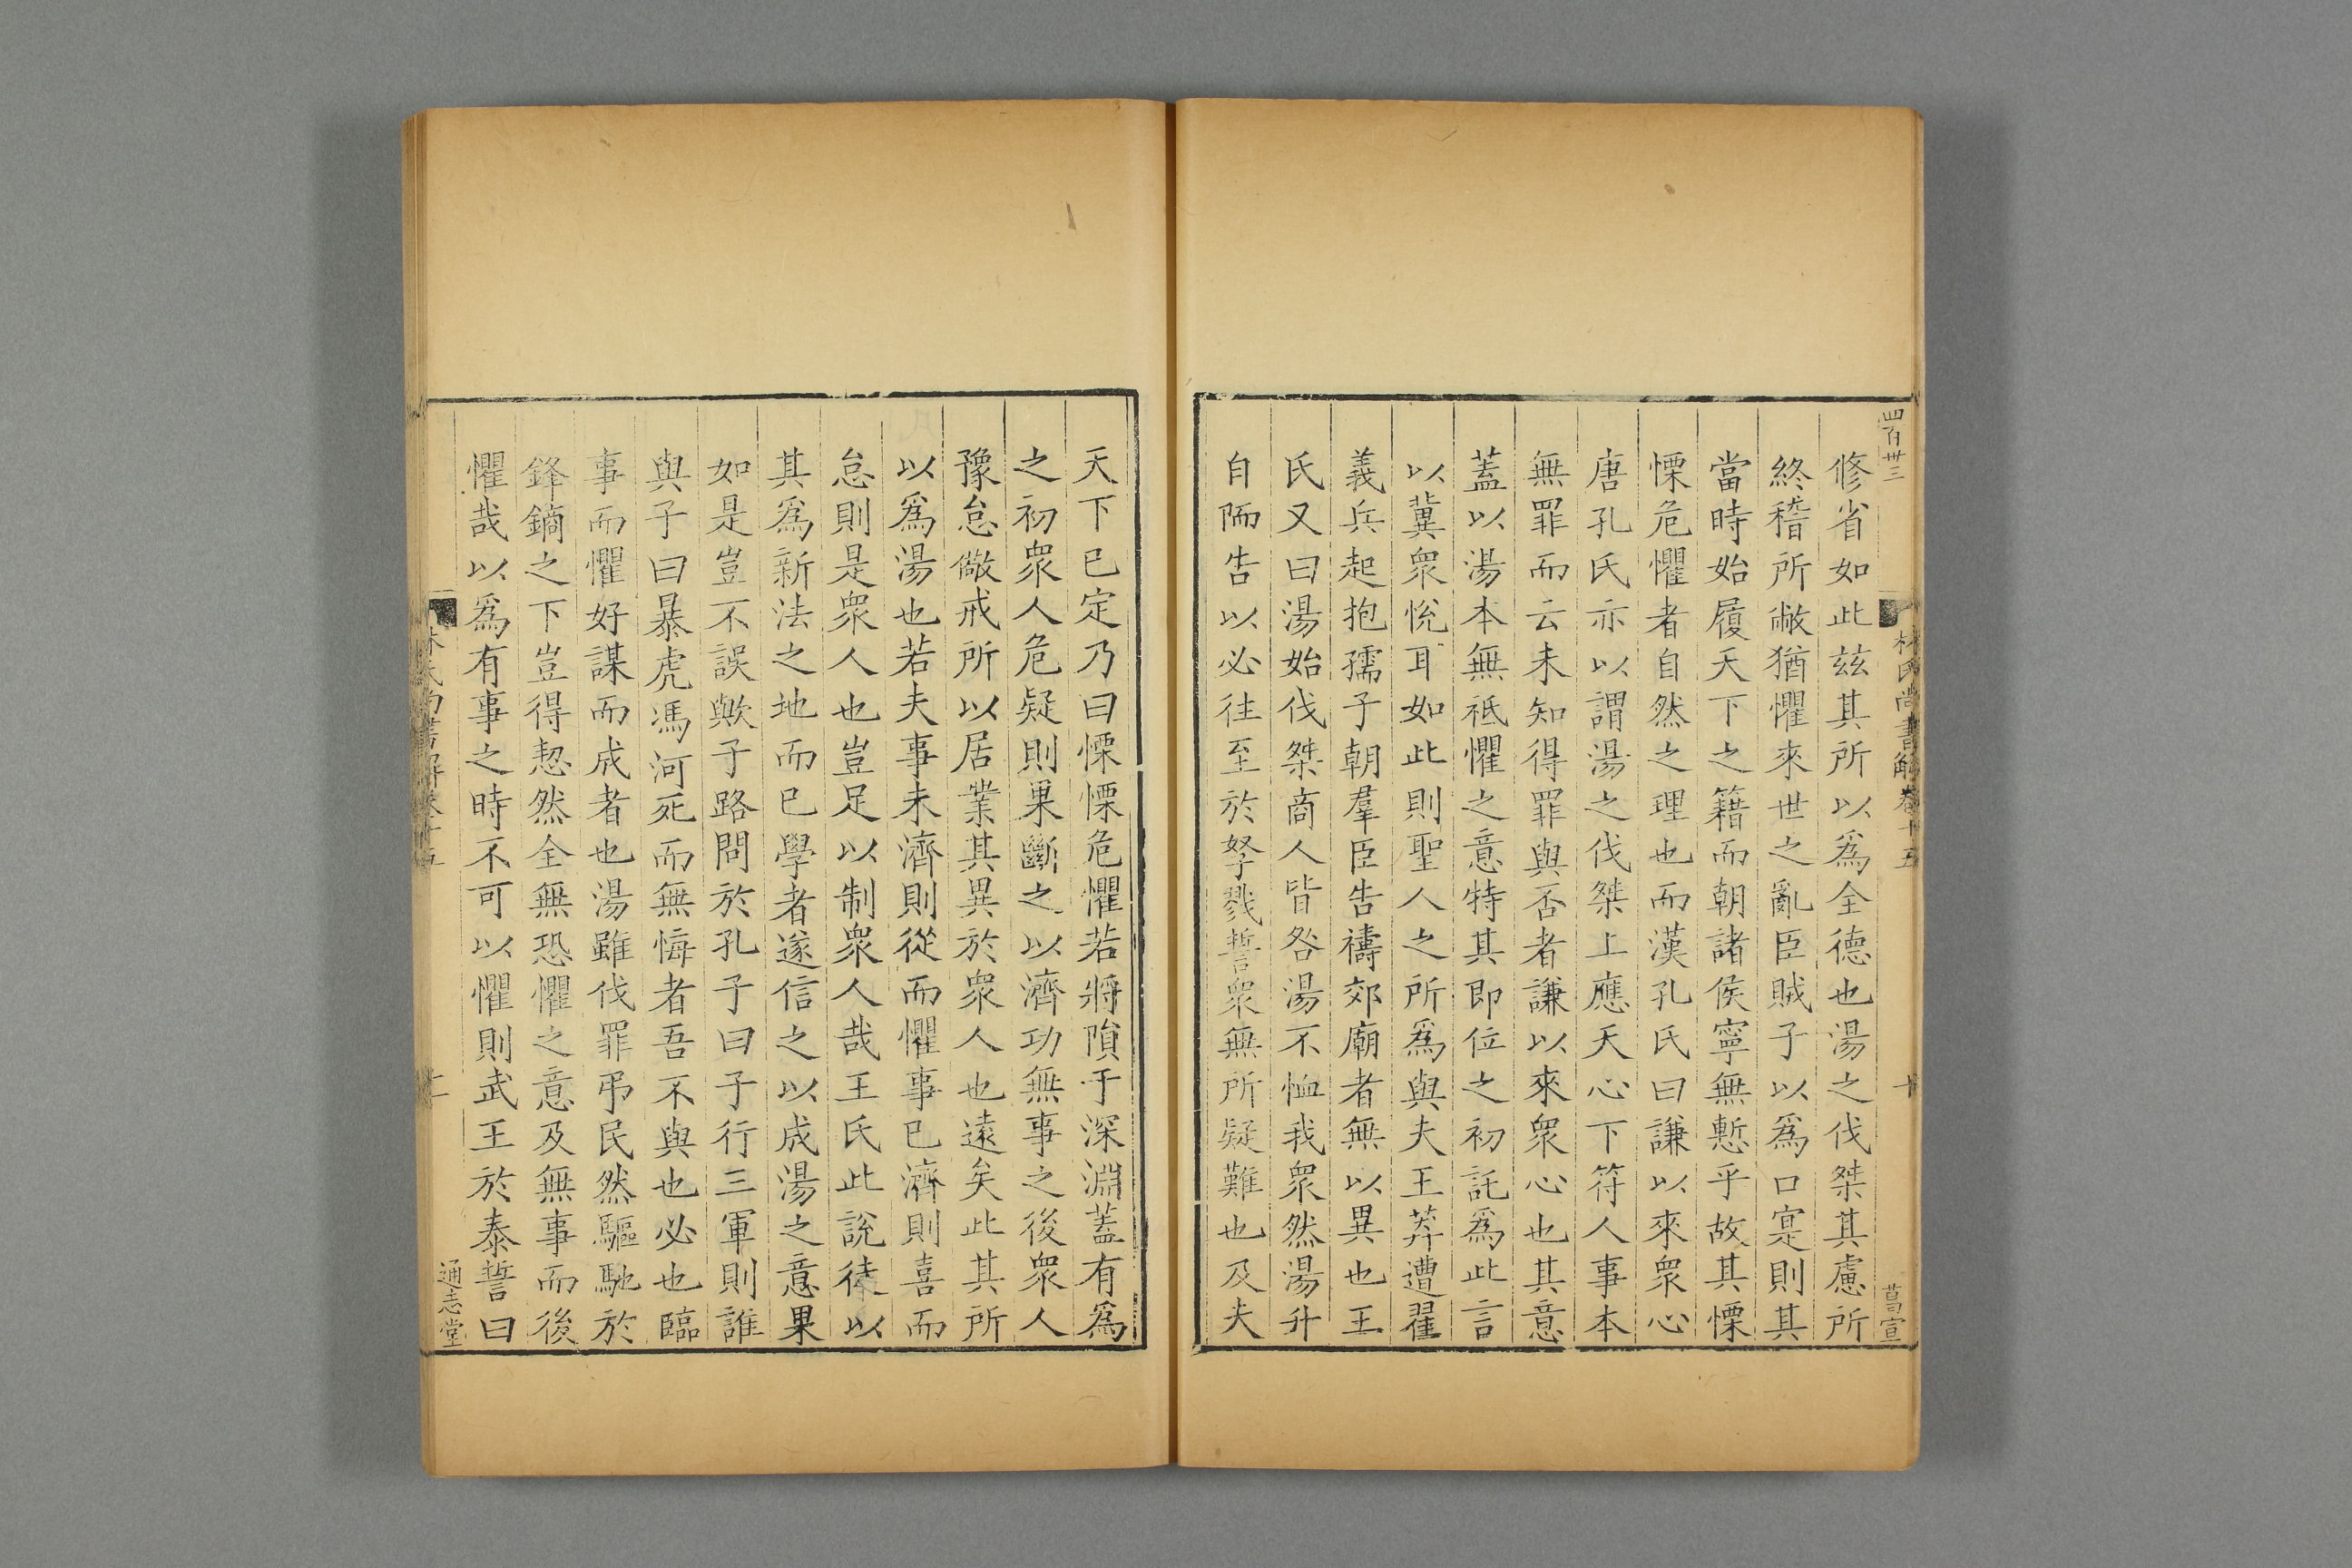 四百卅三
林氏尚書解卷十五
十
葛宣
修省如此兹其所以爲全德也湯之伐桀其慮所
終稽所敝猶懼來世之亂臣賊子以爲口寔則其
當時始履天下之籍而朝諸侯寧無慙乎故其慄
慄危懼者自然之理也而漢孔氏曰謙以來衆心
唐孔氏亦以謂湯之伐桀上應天心下符人事本
無罪而云未知得罪與否者謙以來衆心也其意
蓋以湯本無祗懼之意特其即位之初託爲此言
以冀衆悅耳如此則聖人之所爲與夫王莽遭翟
義兵起抱孺子朝羣臣告禱郊廟者無以異也王
氏又曰湯始伐桀商人皆咎湯不恤我衆然湯升
自陑告以必往至於孥戮誓衆無所疑難也及夫
天下已定乃曰慄慄危懼若將隕于深淵蓋有爲
之初衆人危疑則果斷之以濟功無事之後衆人
豫怠儆戒所以居業其異於衆人也遠矣此其所
以爲湯也若夫事未濟則從而懼事已濟則喜而
怠則是衆人也豈足以制衆人哉王氏此說徒以
其爲新法之地而已學者遂信之以成湯之意果
如是豈不誤歟子路問於孔子曰子行三軍則誰
與子曰暴虎馮河死而無悔者吾不與也必也臨
事而懼好謀而成者也湯雖伐罪弔民然驅馳於
鋒鏑之下豈得恝然全無恐懼之意及無事而後
懼哉以爲有事之時不可以懼則武王於泰誓曰
林氏尚書解卷十五
通志堂